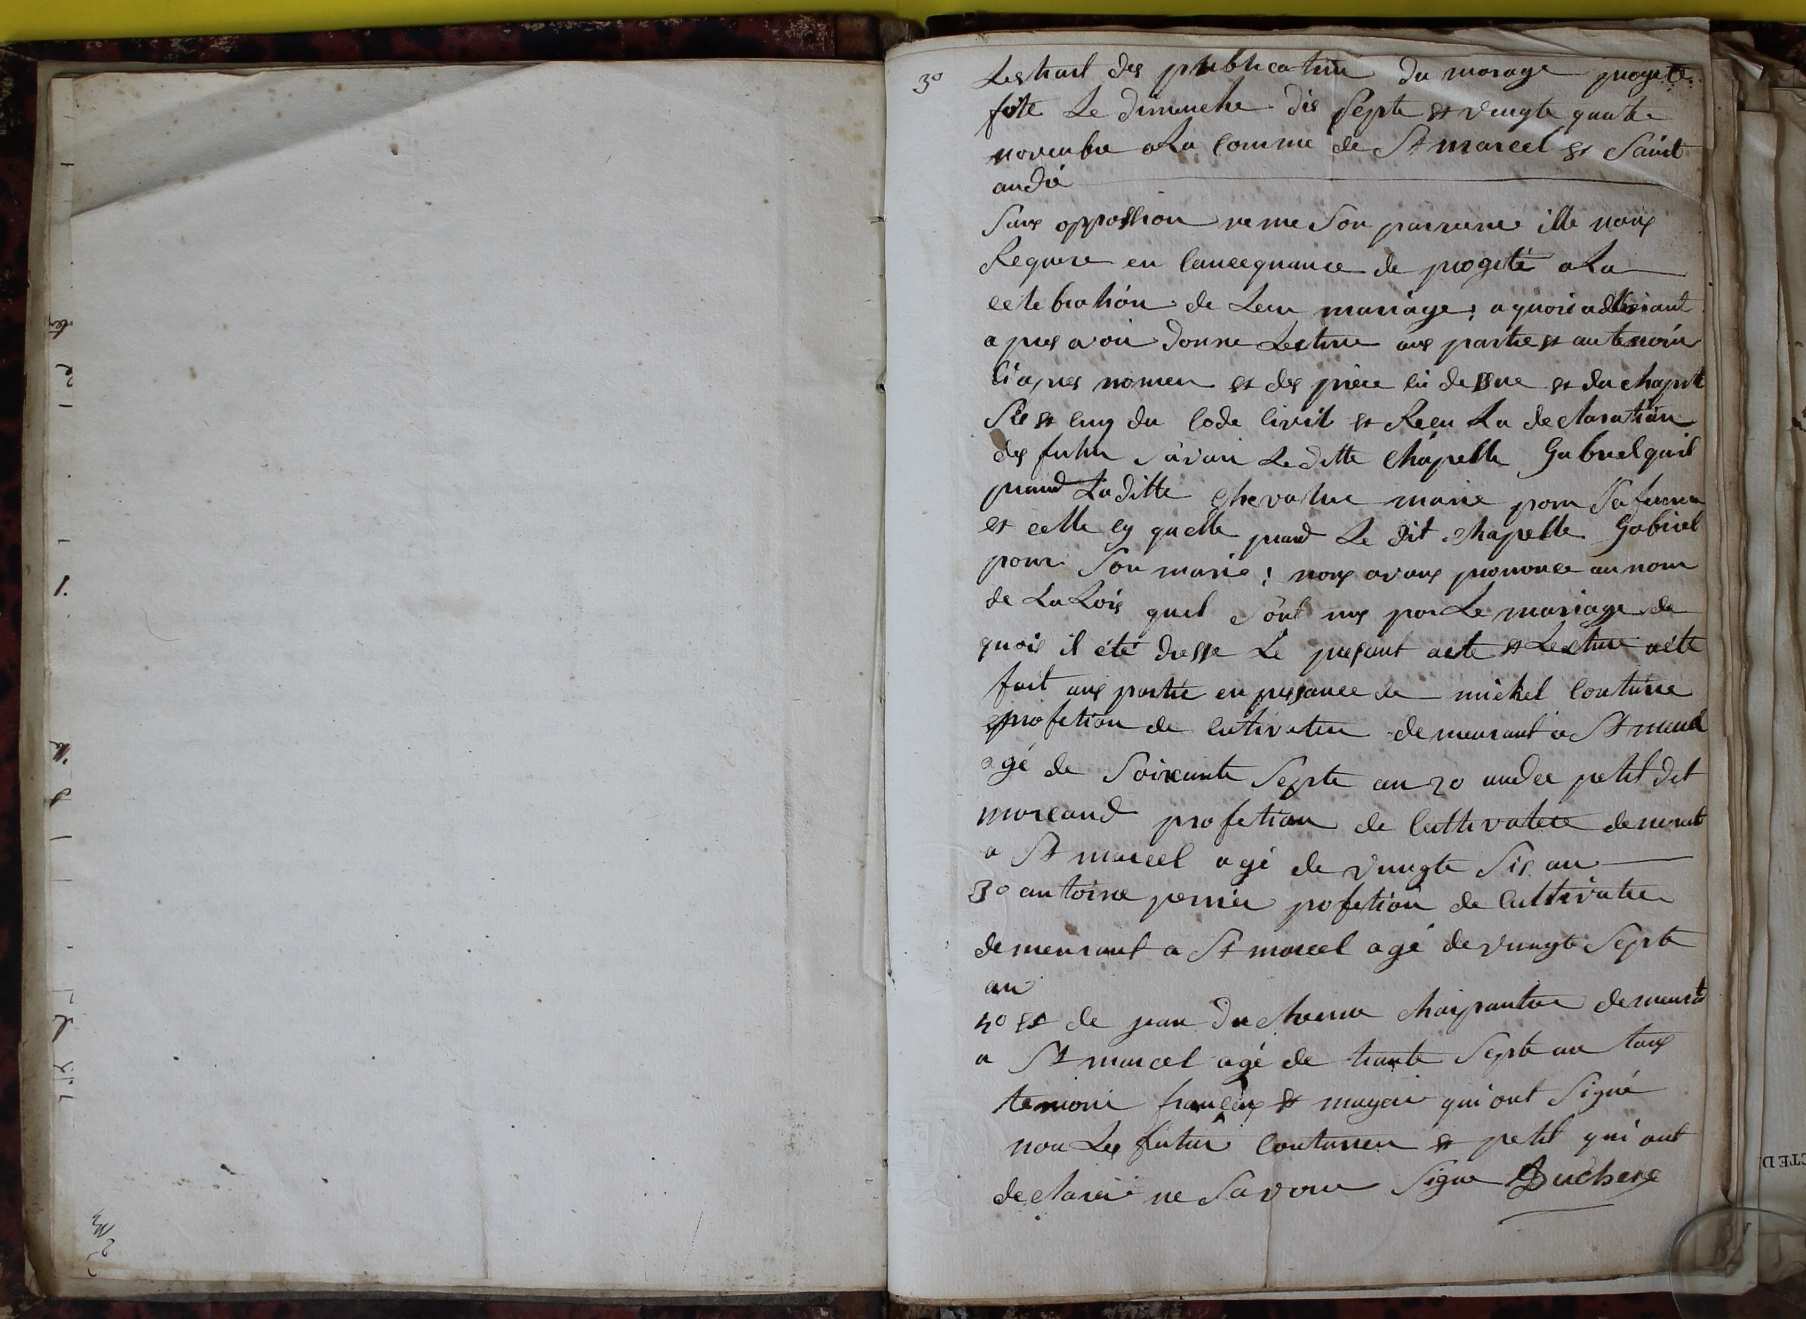 3o Lestrait des publication du mariage progeté
faite Le dimanche dis Septe et vingte quatre
novembre a La Comme de St marcel et Saint
andré
Sans oppossion ne me Son parvenue ille nous
Requere en Concequance de progeté a La
celebration de Leur mariage; a quoi adherant
apres avoir donne Lecture aux partie et au temoin
Ci apres nomer et des piece ci dessue et du chapit
Sis et cinq du Code Civil et Recu La declaration
des futur Savoir Leditte Chapelle Gabriel quil
prand Laditte chevalier marie pour Sa femme
et celle cy quelle prand Le dit Chapelle Gabriel
pour Son marie; nous avons prononce au nom
de La Lois quil Sont unis par Le mariage de
quois il été dresse Le presant acte et Lecture a été
fait aux partie en presance de michel Couturie
profetion de Cultivateur demeurant a St marcel
agé de Soixante Septe an 2o andre petit dit
morcand profetion de Cultivateur demeurant
a St marcel agé de vingte Sis an
3o antoine perrier profetion de Cultivateur
demeurant a St marcel agé de vingte Septe
an
4o et de jean duchenne charpantier demeurant
a St marcel agé de trante Septe an tous
temoin francais et mageur qui ont Signé
non Les futur Couturier et petit qui ont
declarer ne Savoir Signe Duchene
CTE D